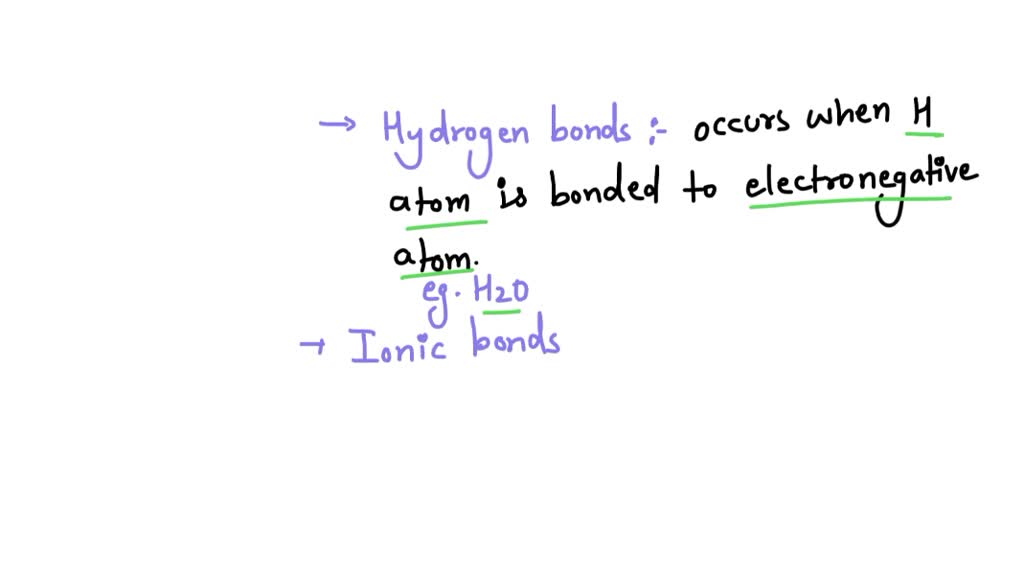 → Hydrogen bonds :- occurs when H
atom is bonded to electronegative
atom.
eg. H2O
→ Ionic bonds